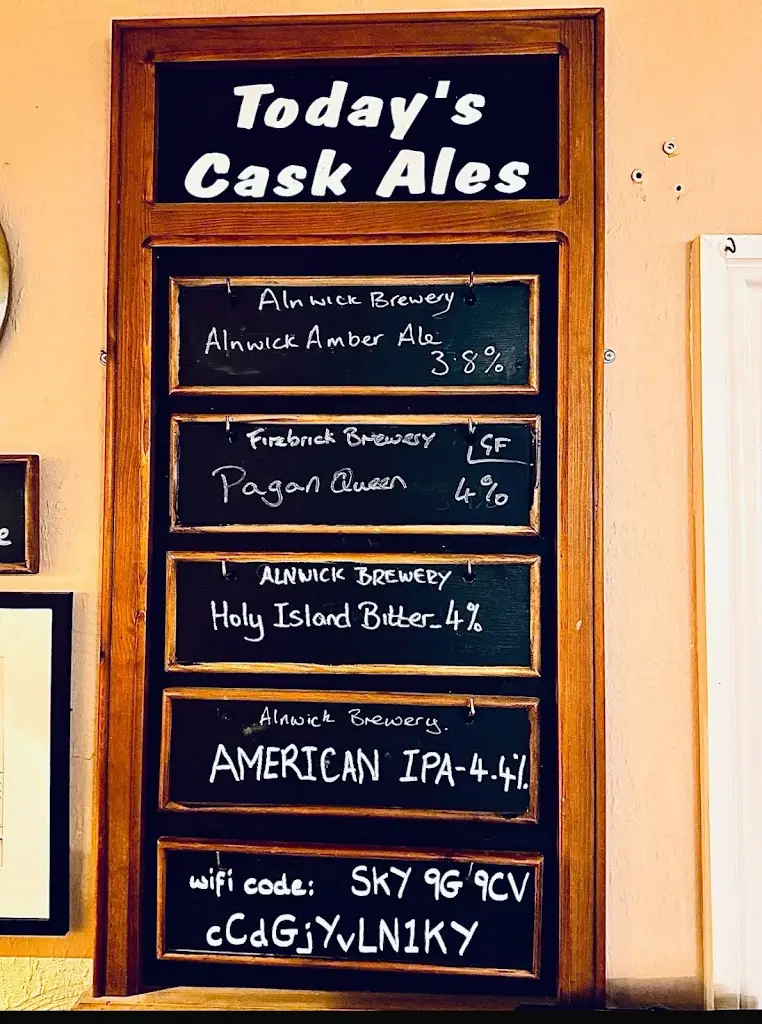 Today's
Cask Ales
Alnwick Brewery
Alnwick Amber Ale
3.8%
Firebrick Brewery GF
Pagan Queen 4%
ALNWICK BREWERY
Holy Island Bitter-4%
Alnwick Brewery.
AMERICAN IPA-4.4%
wifi code: SKY 9G 9CV
cCdGjYvLN1KY
e